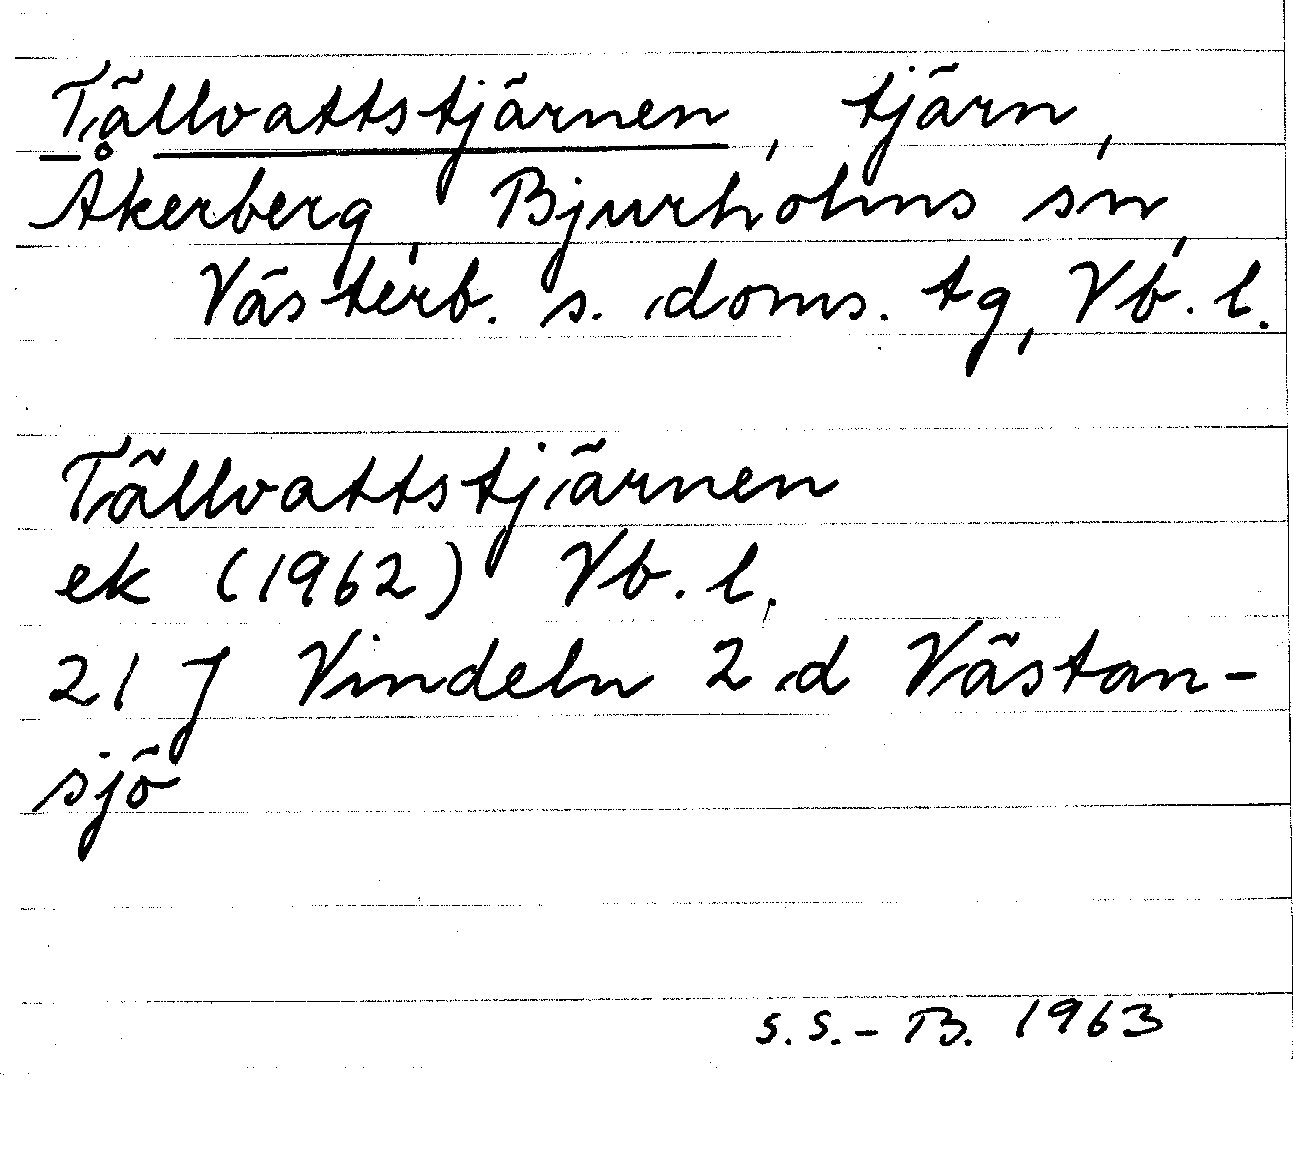 Tällvattstjärnen, tjärn,
Åkerberg, Bjurholms sn,
Västerb. s. doms. tg, Vb. l.
Tällvattstjärnen
ek (1962) Vb. l.
21 J Vindeln 2 d Västan-
sjö
S. S.-B. 1963